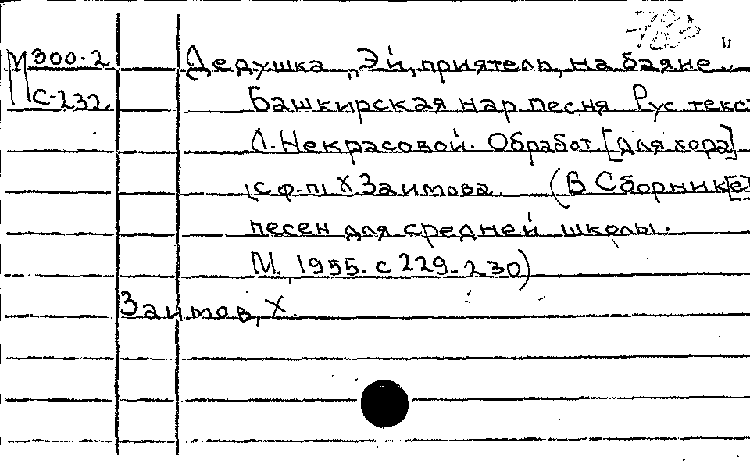 М300-2 Дедушка „Эй, приятель, на баяне..."
С-232. Башкирская нар. песня Рус текс
Л. Некрасовой. Обработ. [для хора]
с ф-п. Х Заимова. (В Сборник[е]
песен для средней школы.
М, 1955. с 229-230)
Заимов, Х.